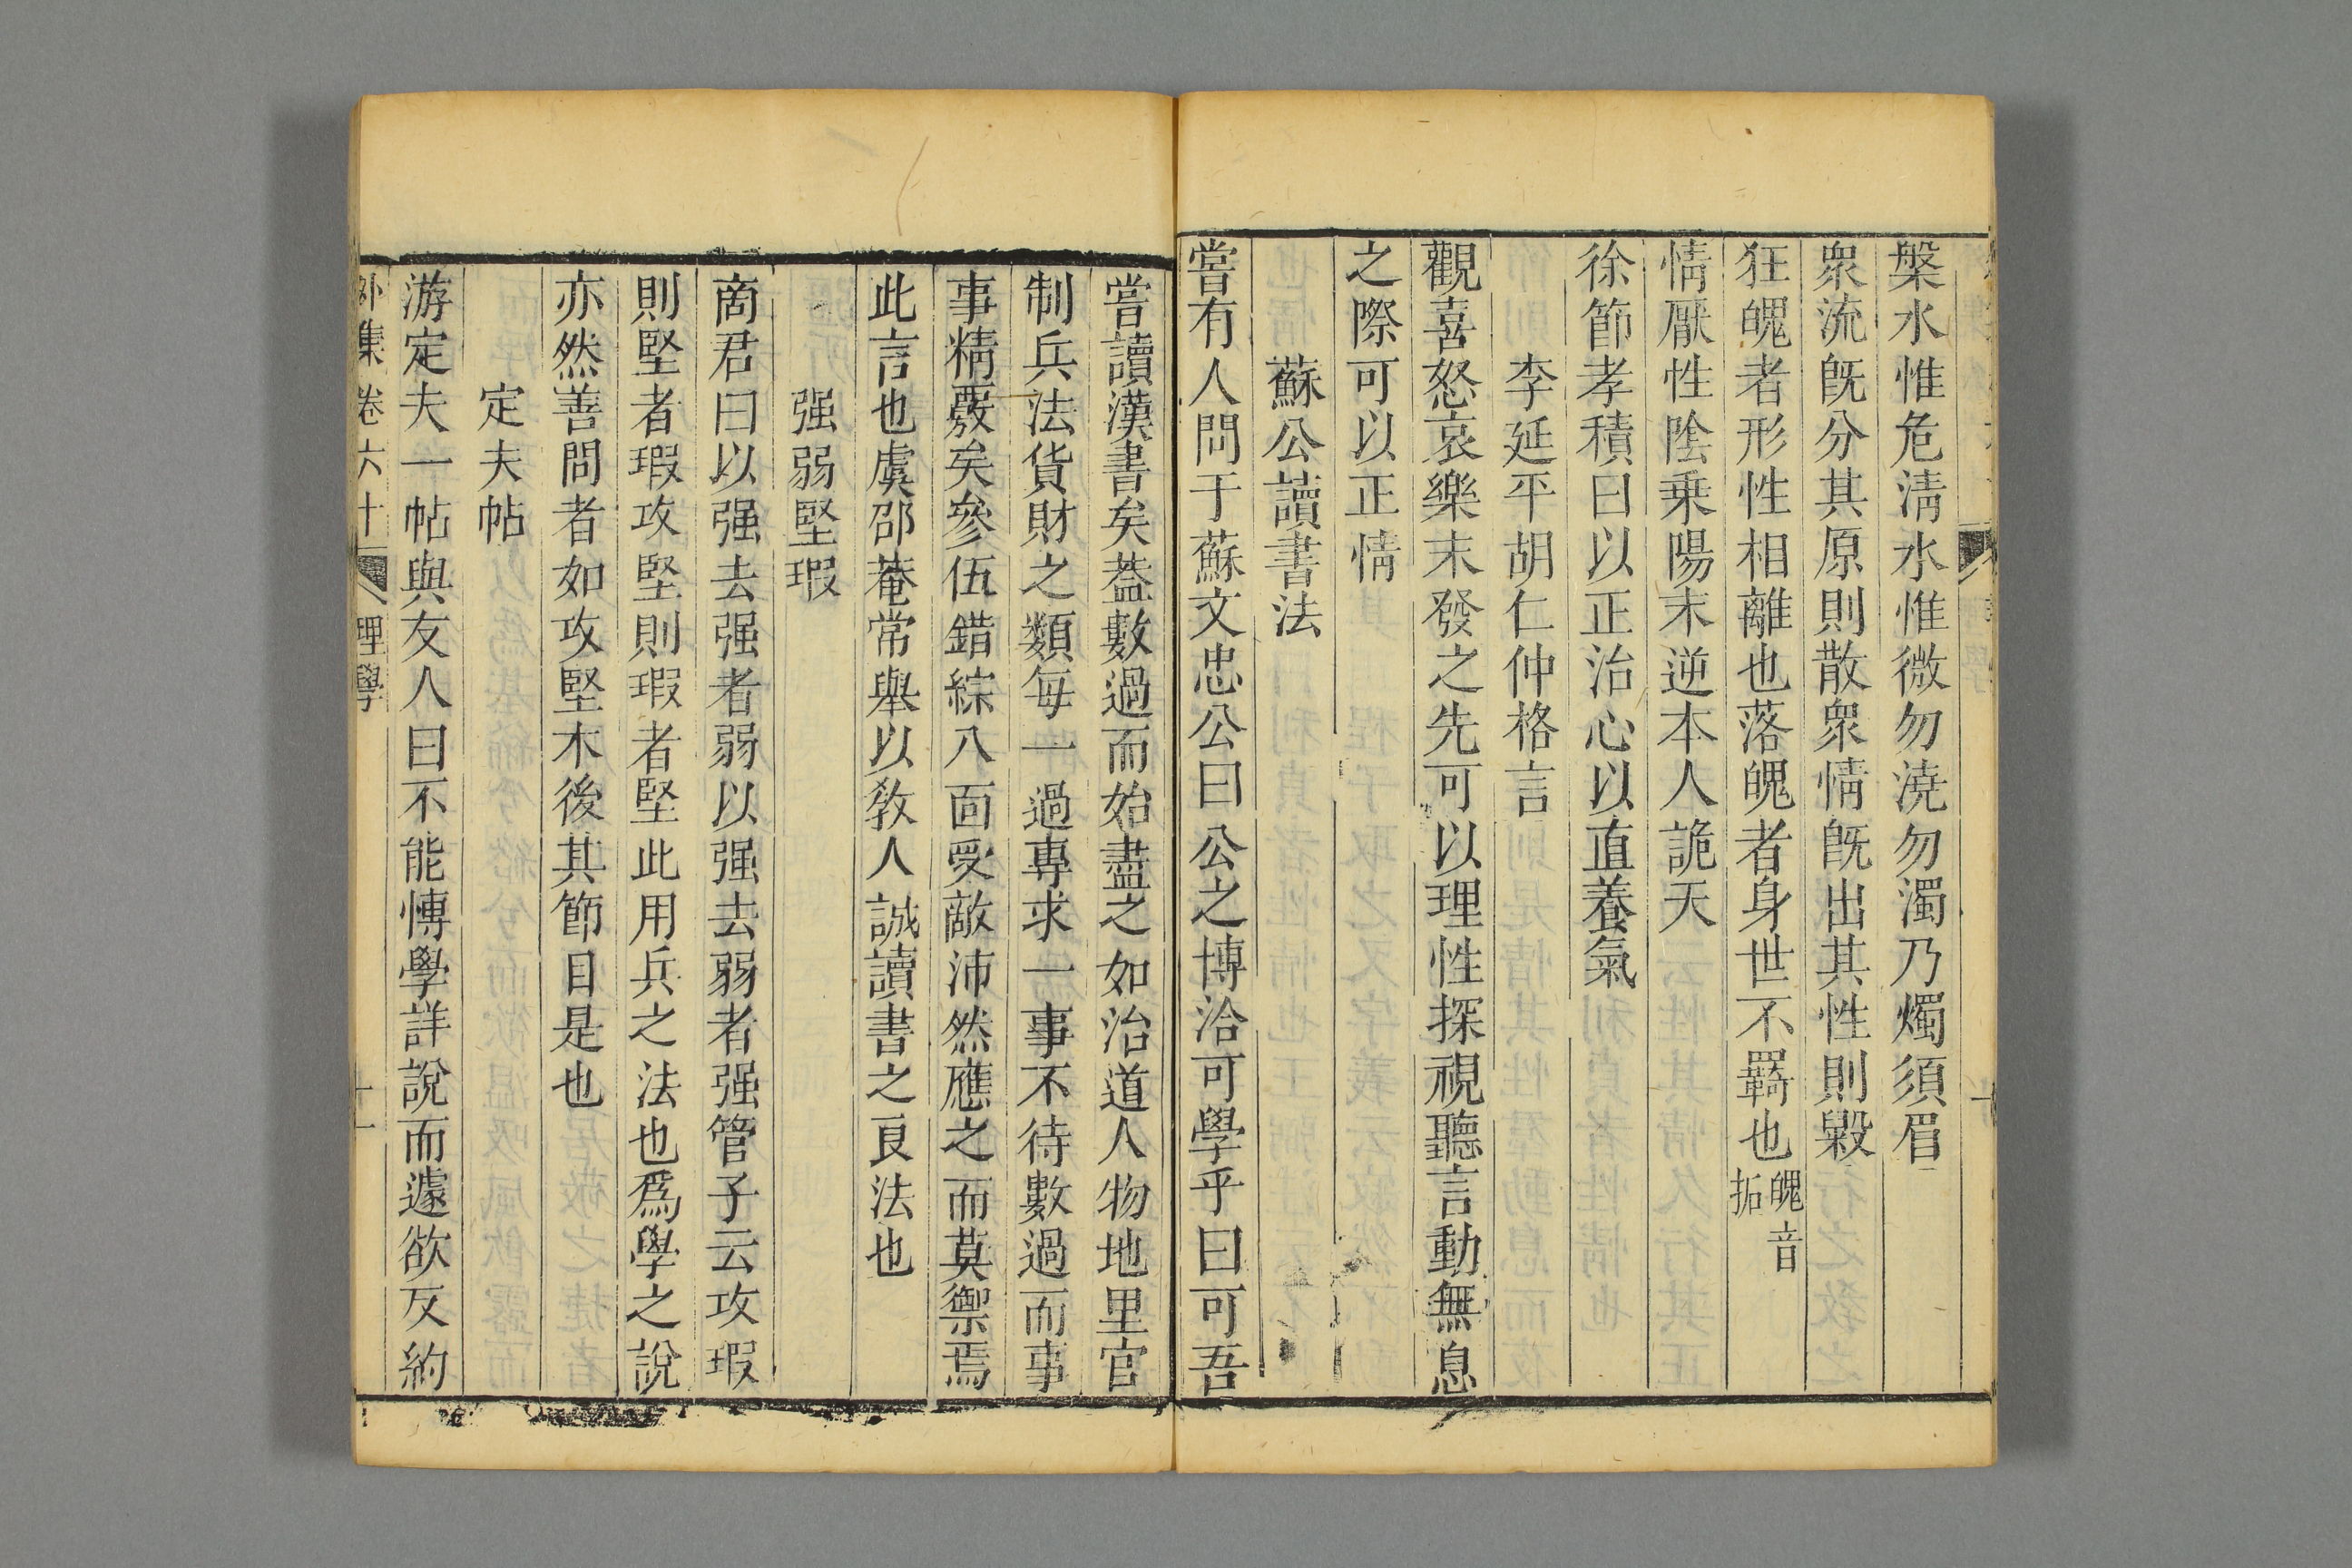 槃水惟危淸水惟微勿澆勿濁乃燭須眉
衆流旣分其原則散衆情旣出其性則毀
狂䰟者形性相離也落䰟者身世不羈也䰟音拓
情厭性陰乗陽末逆本人詭天
徐節孝積曰以正治心以直養氣
李延平胡仁仲格言
觀喜怒哀樂末發之先可以理性探視聽言動無息
之際可以正情
蘇公讀書法
嘗有人問于蘇文忠公曰公之博洽可學乎曰可吾
嘗讀漢書矣葢數過而始盡之如治道人物地里官
制兵法貨財之類每一過專求一事不待數過而事
事精覈矣參伍錯綜八面受敵沛然應之而莫禦焉
此言也虞邵菴常舉以敎人誠讀書之良法也
强弱堅瑕
商君曰以强去强者弱以强去弱者强管子云攻瑕
則堅者瑕攻堅則瑕者堅此用兵之法也爲學之說
亦然善問者如攻堅木後其節目是也
定夫帖
游定夫一帖與友人曰不能愽學詳說而遽欲反約
外集卷六十 理學 十一